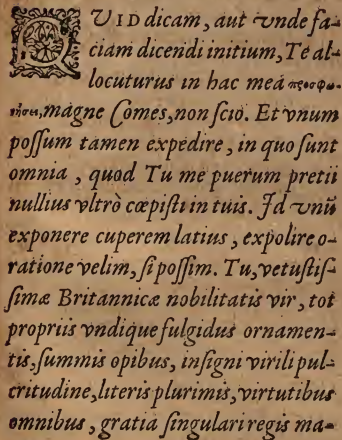 QVID dicam, aut vnde fa-
ciam dicendi initium, Te al-
locuturus in hac meâ προσφω-
νήσει, magne Comes, non scio. Et vnum
possum tamen expedire, in quo sunt
omnia, quod Tu me puerum pretii
nullius vltrò cœpisti in tuis. Id vnũ
exponere cuperem latius, expolire o-
ratione velim, si possim. Tu, vetustis-
simæ Britannicæ nobilitatis vir, tot
propriis vndique fulgidus ornamen-
tis, summis opibus, insigni virili pul-
critudine, literis plurimis, virtutibus
omnibus, gratia singulari regis ma-